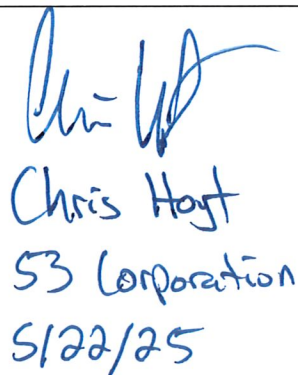 Chris Hoyt
Chris Hoyt
S3 Corporation
5/22/25